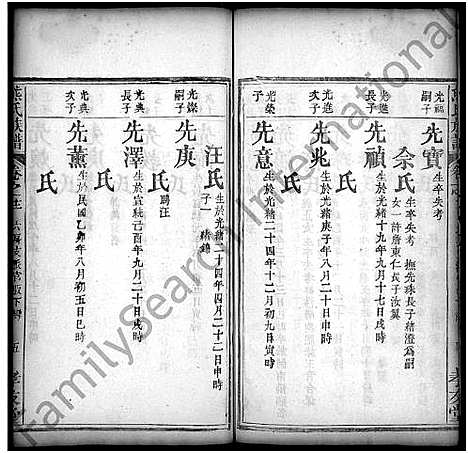 光福嗣子
先寶 生卒失考
氏 生卒失考 撫先珠長子緒澄為嗣
女一許詹東仁長子汝翼
光進次子
先禎 生於光緒十九年九月十七日戌時
氏
光進
先兆 生於光緒庚子年八月二十日
氏
光榮子
先意 生於光緒三十四年十二月初九日寅時
氏
光燦嗣子
先庚 生於光緒二十四年四月二十二日申時
汪氏
子一 緒錦
光典長子
先澤 生於宣統己酉年九月二十日戌時
氏 聘汪
光典次子
先薰 生於民國乙卯年八月初五日巳時
氏
氏族譜
五
孝友堂
FamilySearch International